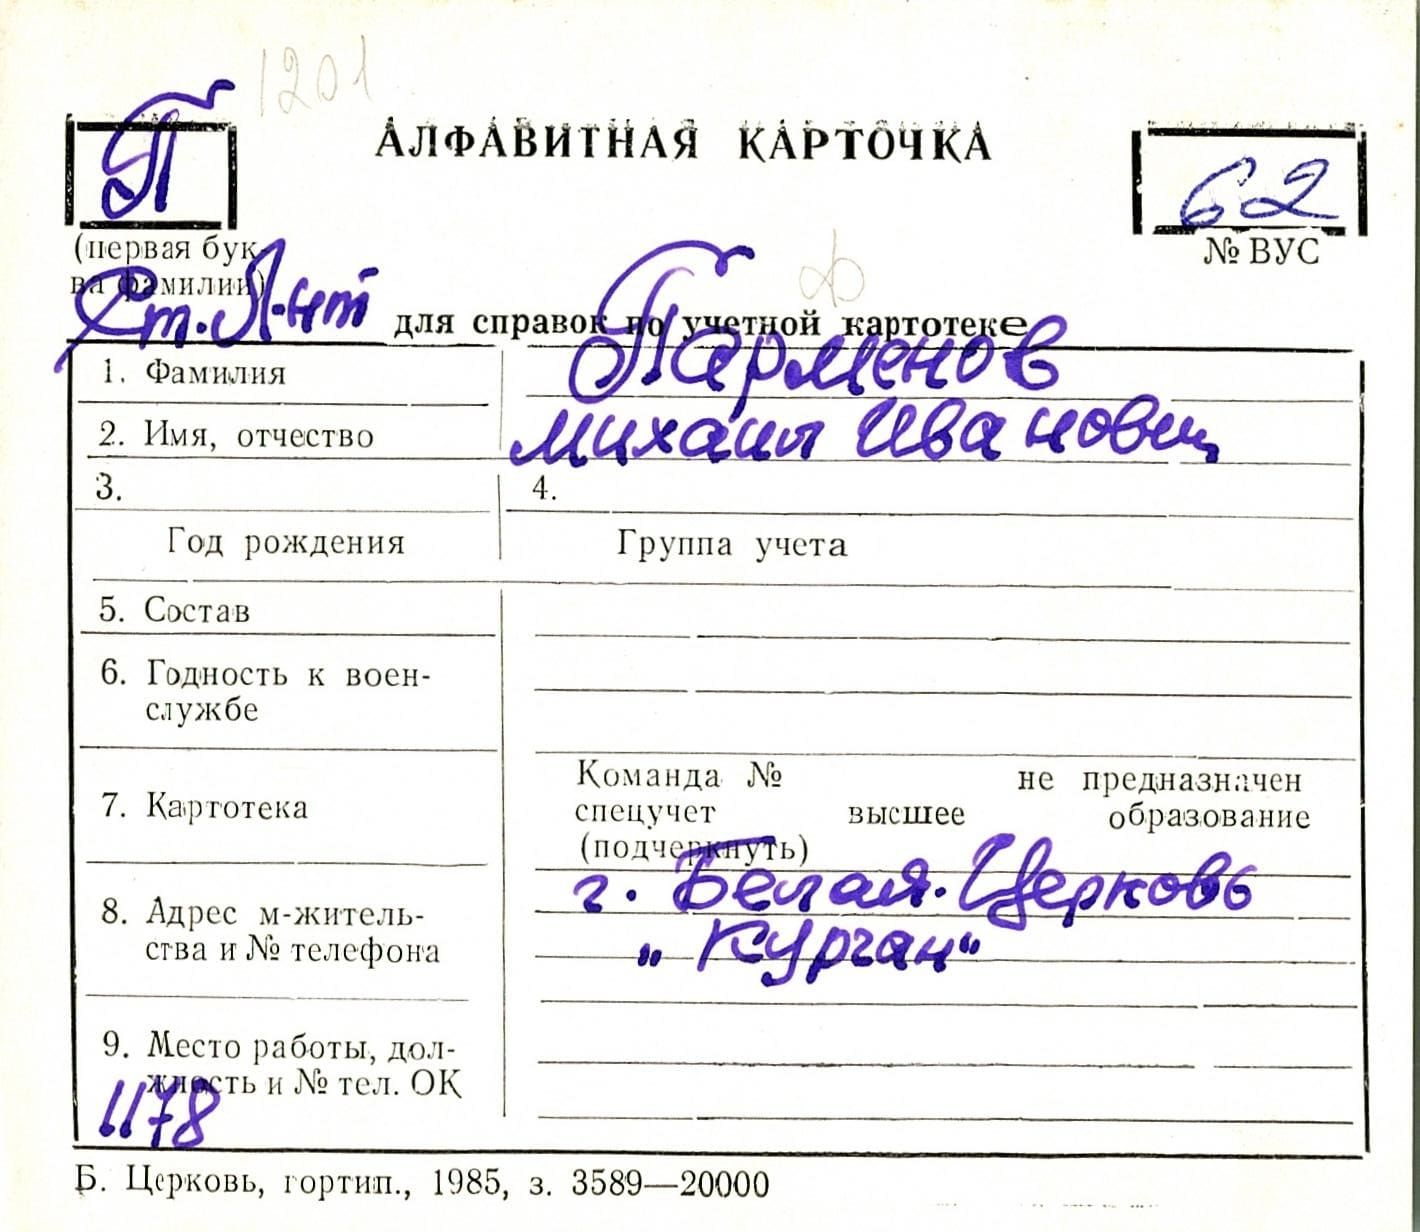 1201
П
АЛФАВИТНАЯ КАРТОЧКА
62
(первая бук-
ва фамилии)
№ ВУС
Ст. Л-нт
для справок по учетной картотеке
1. Фамилия
Парменов
2. Имя, отчество
Михаил Иванович
3.
4.
Год рождения
Группа учета
5. Состав
6. Годность к воен-
службе
7. Картотека
Команда № не предназначен
спецучет высшее образование
(подчеркнуть)
8. Адрес м-житель-
ства и № телефона
г. Белая-Церковь
„Курган“
9. Место работы, дол-
жность и № тел. ОК
1178
Б. Церковь, гортип., 1985, з. 3589—20000